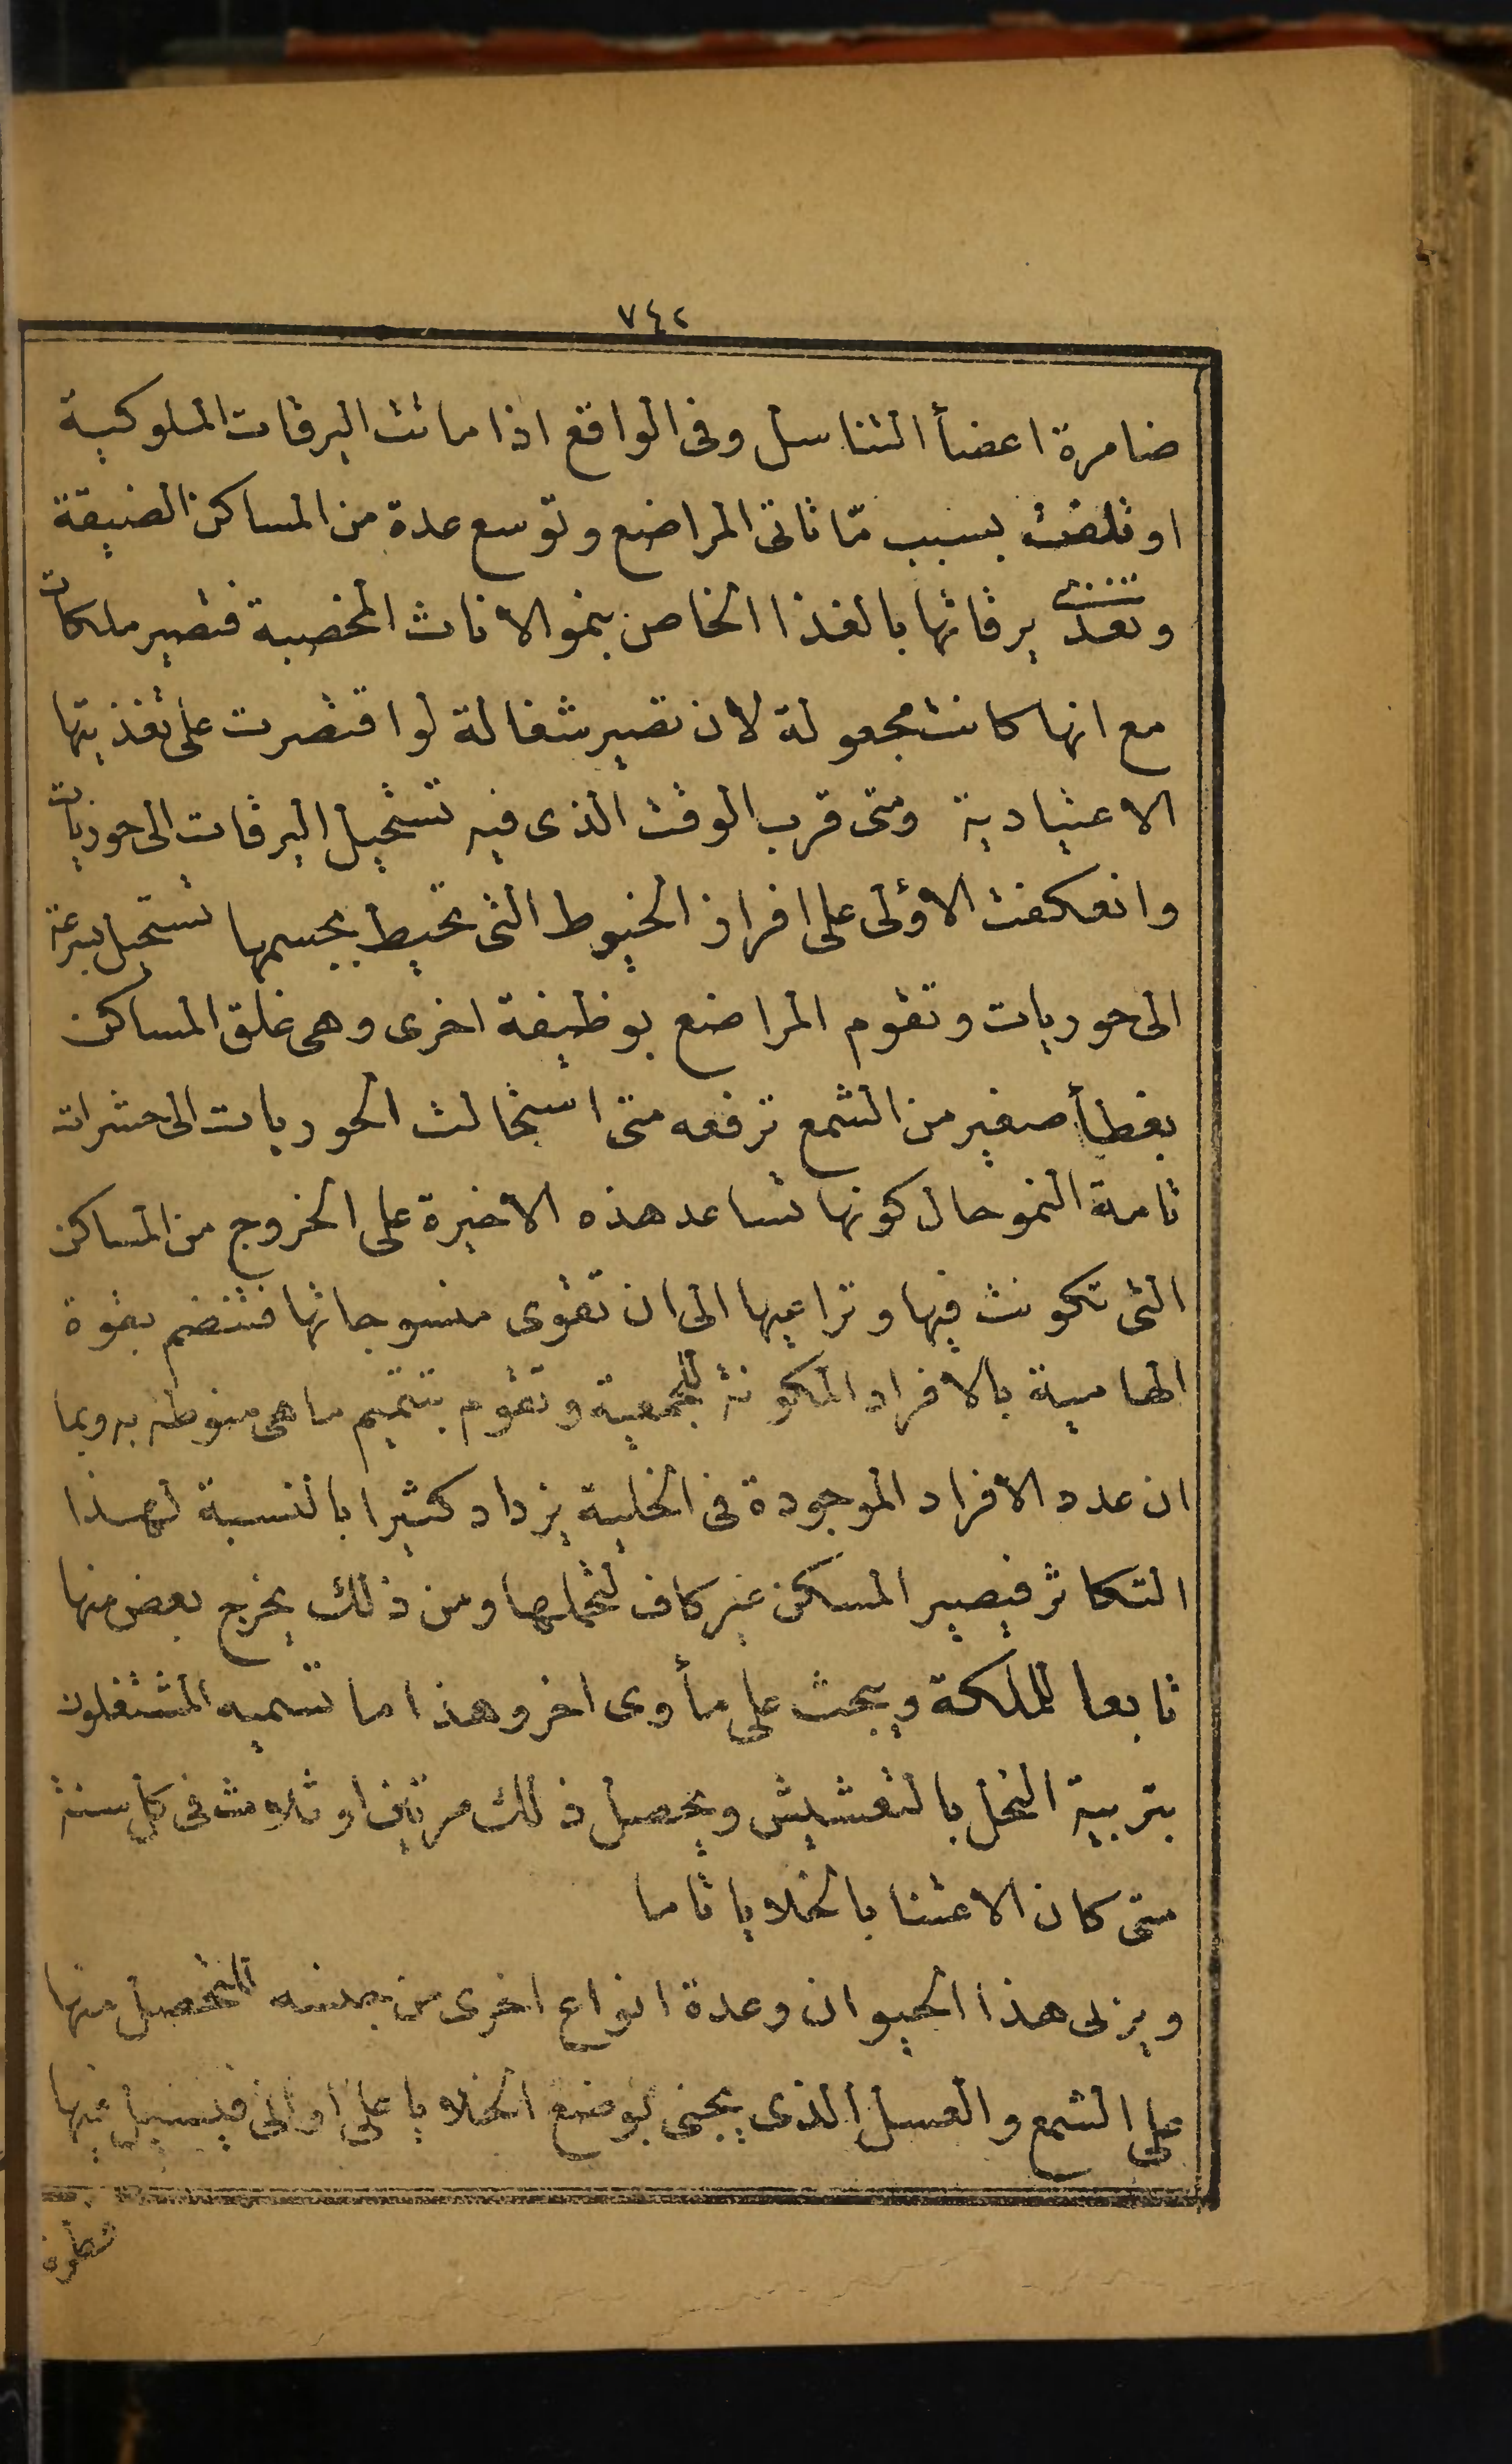 ٧٤٢
ضامرة اعضأ التناسل وفى الواقع اذا ماتت اليرقات الملوكية
او تلفت بسبب مّا تاتى المراضع وتوسع عدة من المساكن الضيقة
وتغذ يرقاتها بالغذا الخاص بنمو الاناث المخصبة فتصير ملكات
مع انها كانت مجعولة لان تصير شغالة لو اقتصرت على تغذيتها
الاعتيادية ومتى قرب الوقت الذى فيه تستحيل اليرقات الى حوريات
وانعكفت الاولى على افراز الخيوط التى تحيط بجسمها تستحيل بسرعة
الى حوريات وتقوم المراضع بوظيفة اخرى وهى غلق المساكن
بغطأ صغير من الشمع ترفعه متى استحالت الحوريات الى حشرات
تامة النمو حال كونها تساعد هذه الاخيرة على الخروج من المساكن
التى تكونت فيها وتراعيها الى ان تقوى منسوجاتها فتنضم بقوة
الهامية بالافراد المكونة للجمعية وتقوم بتتميم ما هى منوطة به وبما
ان عدد الافراد الموجودة فى الخلية يزداد كثيرا بالنسبة لهذا
التكاثر فيصير المسكن غير كاف لتحملها ومن ذلك يخرج بعض منها
تابعا للملكة ويبحث على مأوى اخر وهذا ما تسميه المشتغلون
بتربية النحل بالتعشيش ويحصل ذلك مرتين او ثلاث فى كل سنة
متى كان الاعتنا بالخلايا تاما
ويربى هذا الحيوان وعدة انواع اخرى من جنسه للتحصل منها
على الشمع والعسل الذى يجنى بوضع الخلايا على اوانى فيسيل فيها